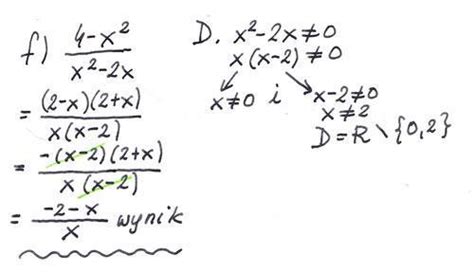 f) \frac{4-x^2}{x^2-2x}
= \frac{(2-x)(2+x)}{x(x-2)}
= \frac{-(x-2)(2+x)}{x(x-2)}
= \frac{-2-x}{x} wynik
D. x^2-2x≠0
x(x-2)≠0
x≠0 i x-2≠0
x≠2
D=R\{0,2}